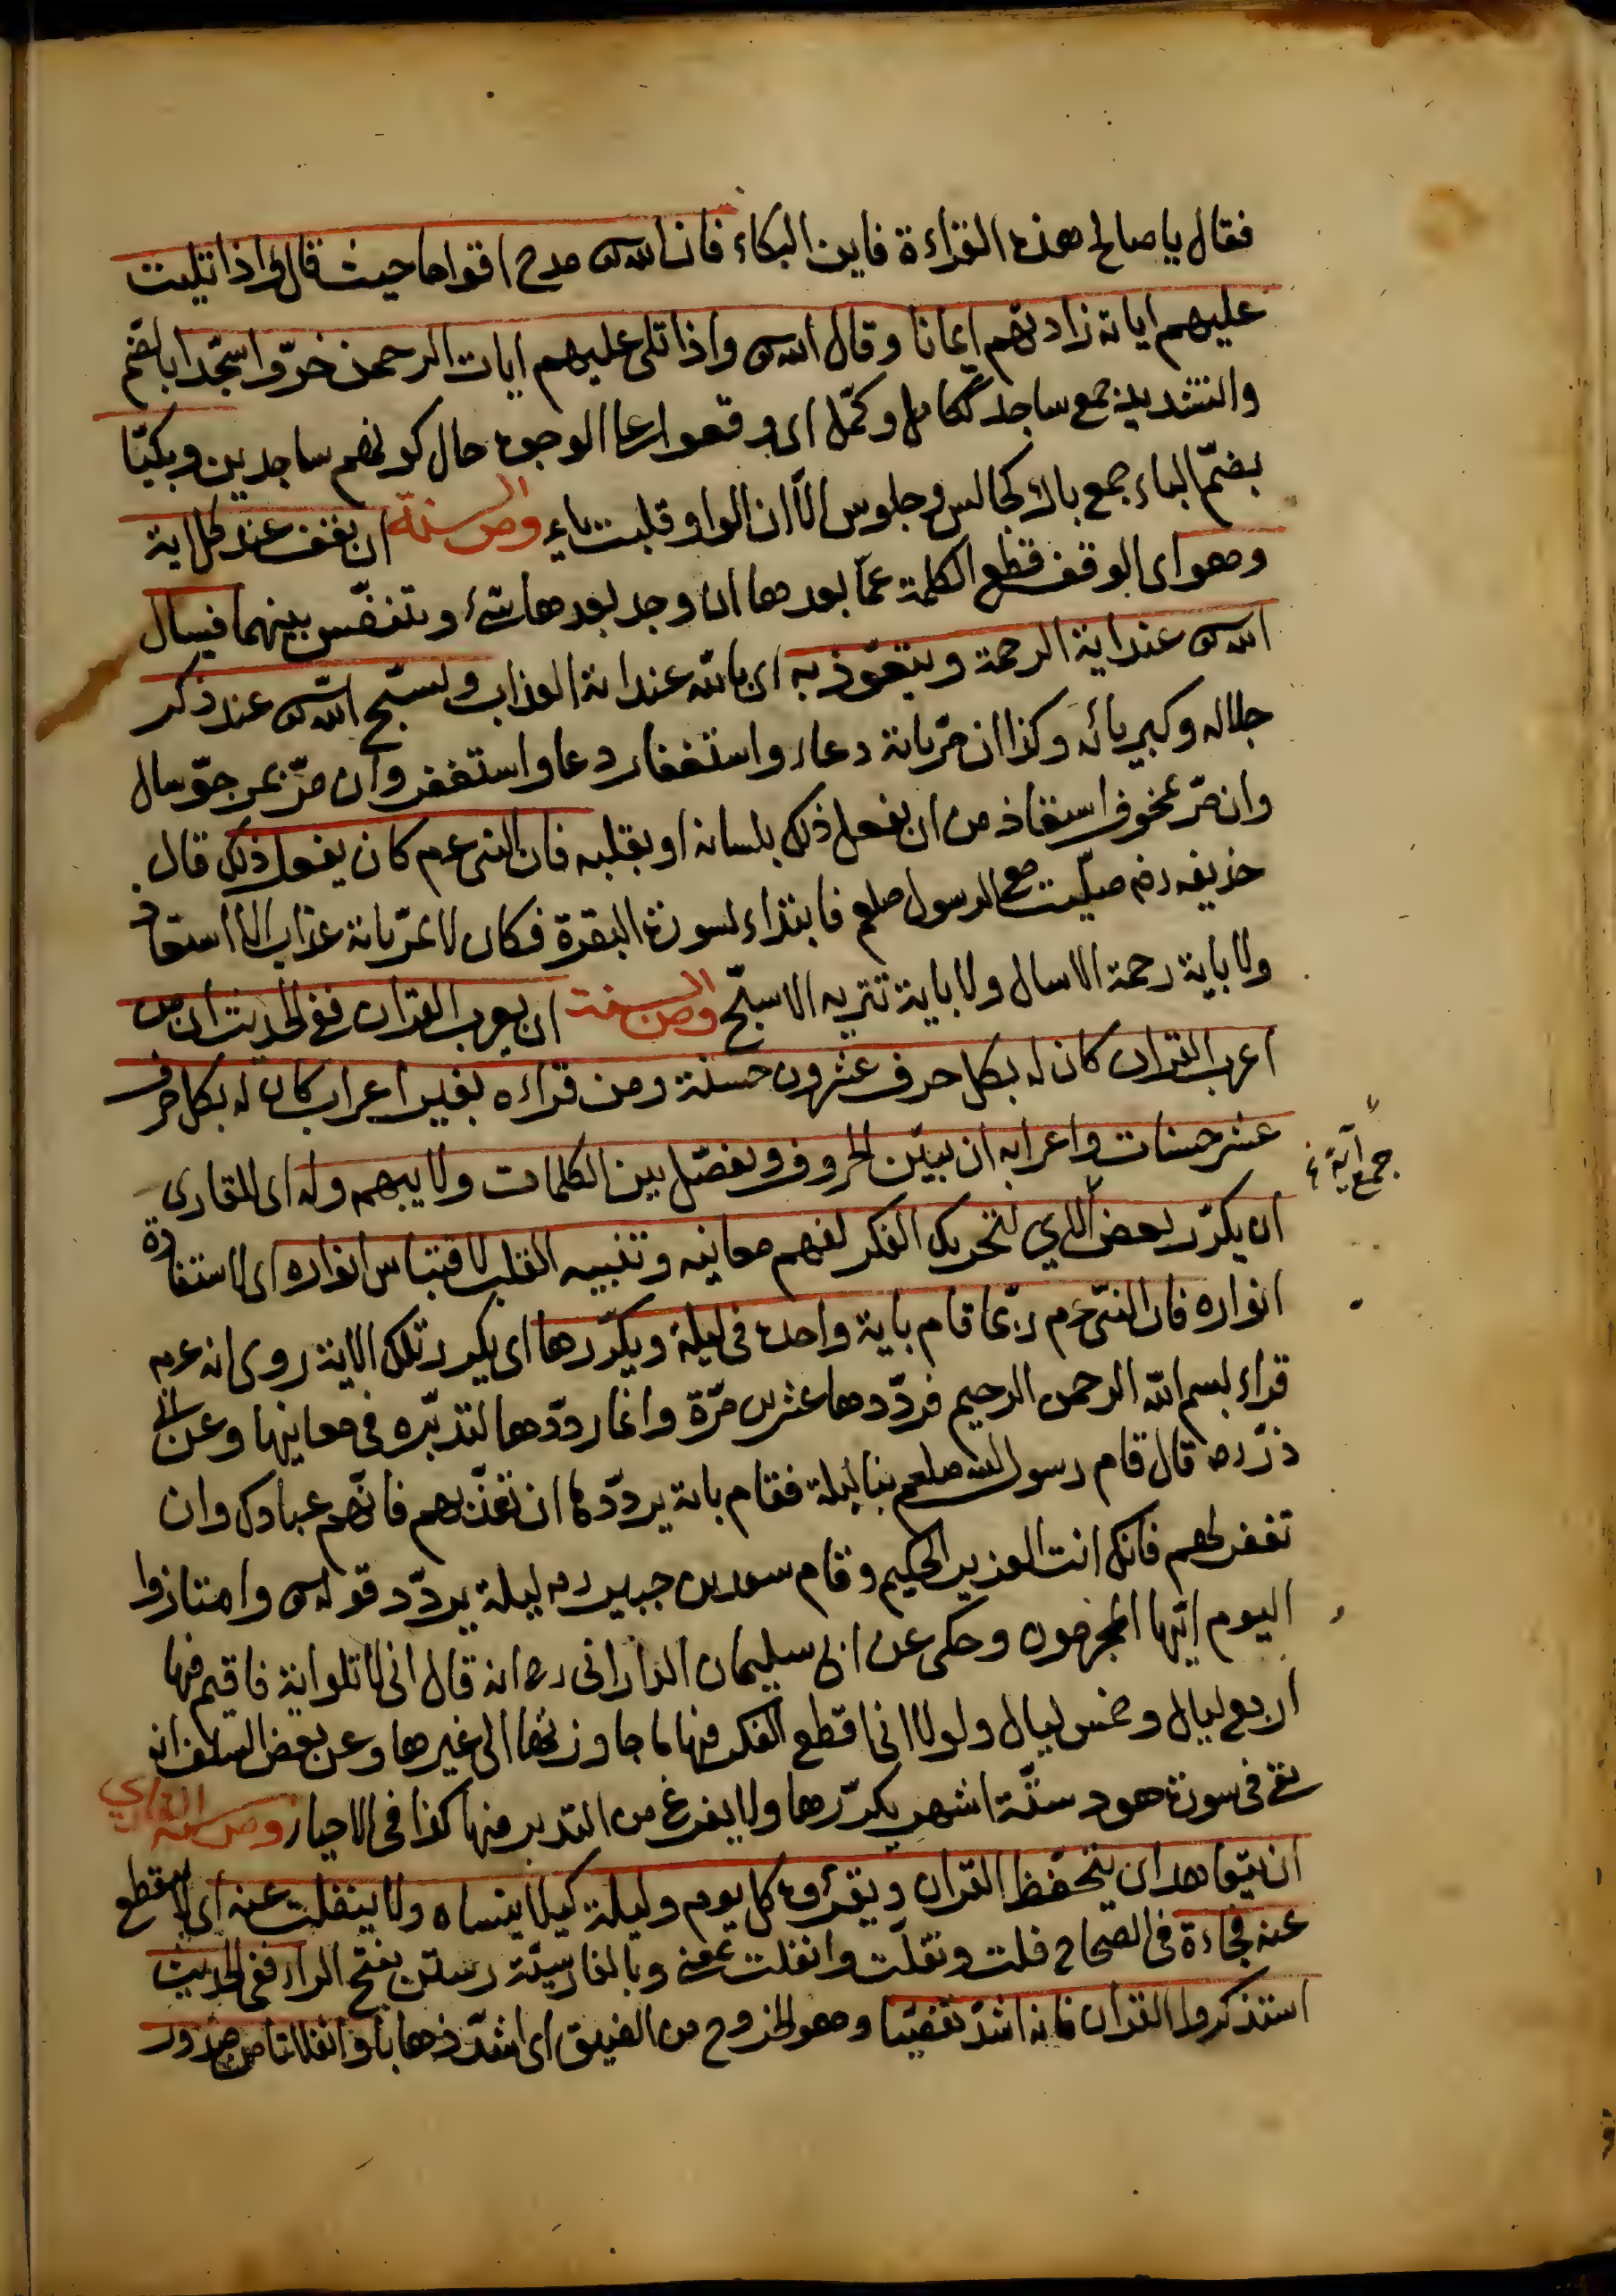 فقال يا صالح هذه القراءة فاين البكاء فان الله تع مدح اقواما حيث قال واذا تليت
عليهم اياته زادتهم ايمانا وقال الله تع واذا تلى عليهم ايات الرحمن خرّوا سجّدا بالضم
والتشديد جمع ساجد ككامل وكمّل اى وقعوا على الوجوه حال كونهم ساجدين وبكيّا
بضمّ الباء جمع باك كجالس وجلوس الّا ان الواو قلبت ياء ومن السنة ان يقف عند كل اية
وهو اى الوقف قطع الكلمة عمّا بعدها ان وجد بعدها شئ ويتنفّس بينهما فيسال
الله تع عند اية الرحمة ويتعوّذ به اى بالله عند اية العذاب ويسبّح الله تع عند ذكر
جلاله وكبريائه وكذا ان مرّ باية دعاء واستغفار دعا واستغفر وان مرّ بمرجوّ سال
وان مرّ بمخوف استعاذ من ان يفعل ذلك بلسانه او بقلبه فان النبى عم كان يفعل ذلك قال
حذيفه رض صلّيت مع الرسول صلعم فابتداء بسورة البقرة فكان لا يمرّ باية عذاب الا استعاذ
ولا باية رحمة الا سال ولا باية تنزيه الا سبّح ومن السنة ان يعرب القران ففى الحديث ان من
اعرب القران كان له بكل حرف عشرون حسنة ومن قراءه بغير اعراب كان له بكل حرف
عشر حسنات واعرابه ان يبيّن الحروف ويفصّل بين الكلمات ولا يبهم وله اى للقارى
جمع آية
ان يكرّر بعض الآي لتحريك الفكر لفهم معانيه وتنبيه القلب لاقتباس انواره اى لاستفادة
انواره فان النبّى عم ربّما قام باية واحدة فى ليلة ويكرّرها اى يكرر تلك الاية روى انه عم
قراء بسم الله الرحمن الرحيم فردّدها عشرين مرّة وانما ردّدها لتدبّره فى معانيها وعن ابى
ذرّ رض قال قام رسول الله صلعم بنا ليلة فقام باية يردّدها ان تعذّبهم فانّهم عبادك وان
تغفر لهم فانك انت العزيز الحكيم وقام سعد بن جبير ره ليلة يردّد قوله تع وامتازوا
اليوم ايّها المجرمون وحكى عن ابى سليمان الدارانى ره انه قال انى لا تلو اية فاقيم فيها
اربع ليال وخمس ليال ولولا انى اقطع الفكر فيها ما جاوزتها الى غيرها وعن بعض السلف انه
بقى فى سورة هود ستّة اشهر يكرّرها ولا يفرغ من التدبر فيها كذا فى الاحياء ومن سنة القارى
ان يتعاهد اى يتحفّظ القران ويقرؤه كل يوم وليلة كيلا ينساه ولا ينفلت عنه اى لا ينقطع
عنه فجاءة فى الصحاح فلت وتفلّت وانفلت بمعنى وبالفارسيّة رستن بفتح الراء ففى الحديث
استذكروا القران فانه اشدّ تفصّيا وهو الخروج من الضيق اى اشدّ ذهابا وانفلاتا من صدور